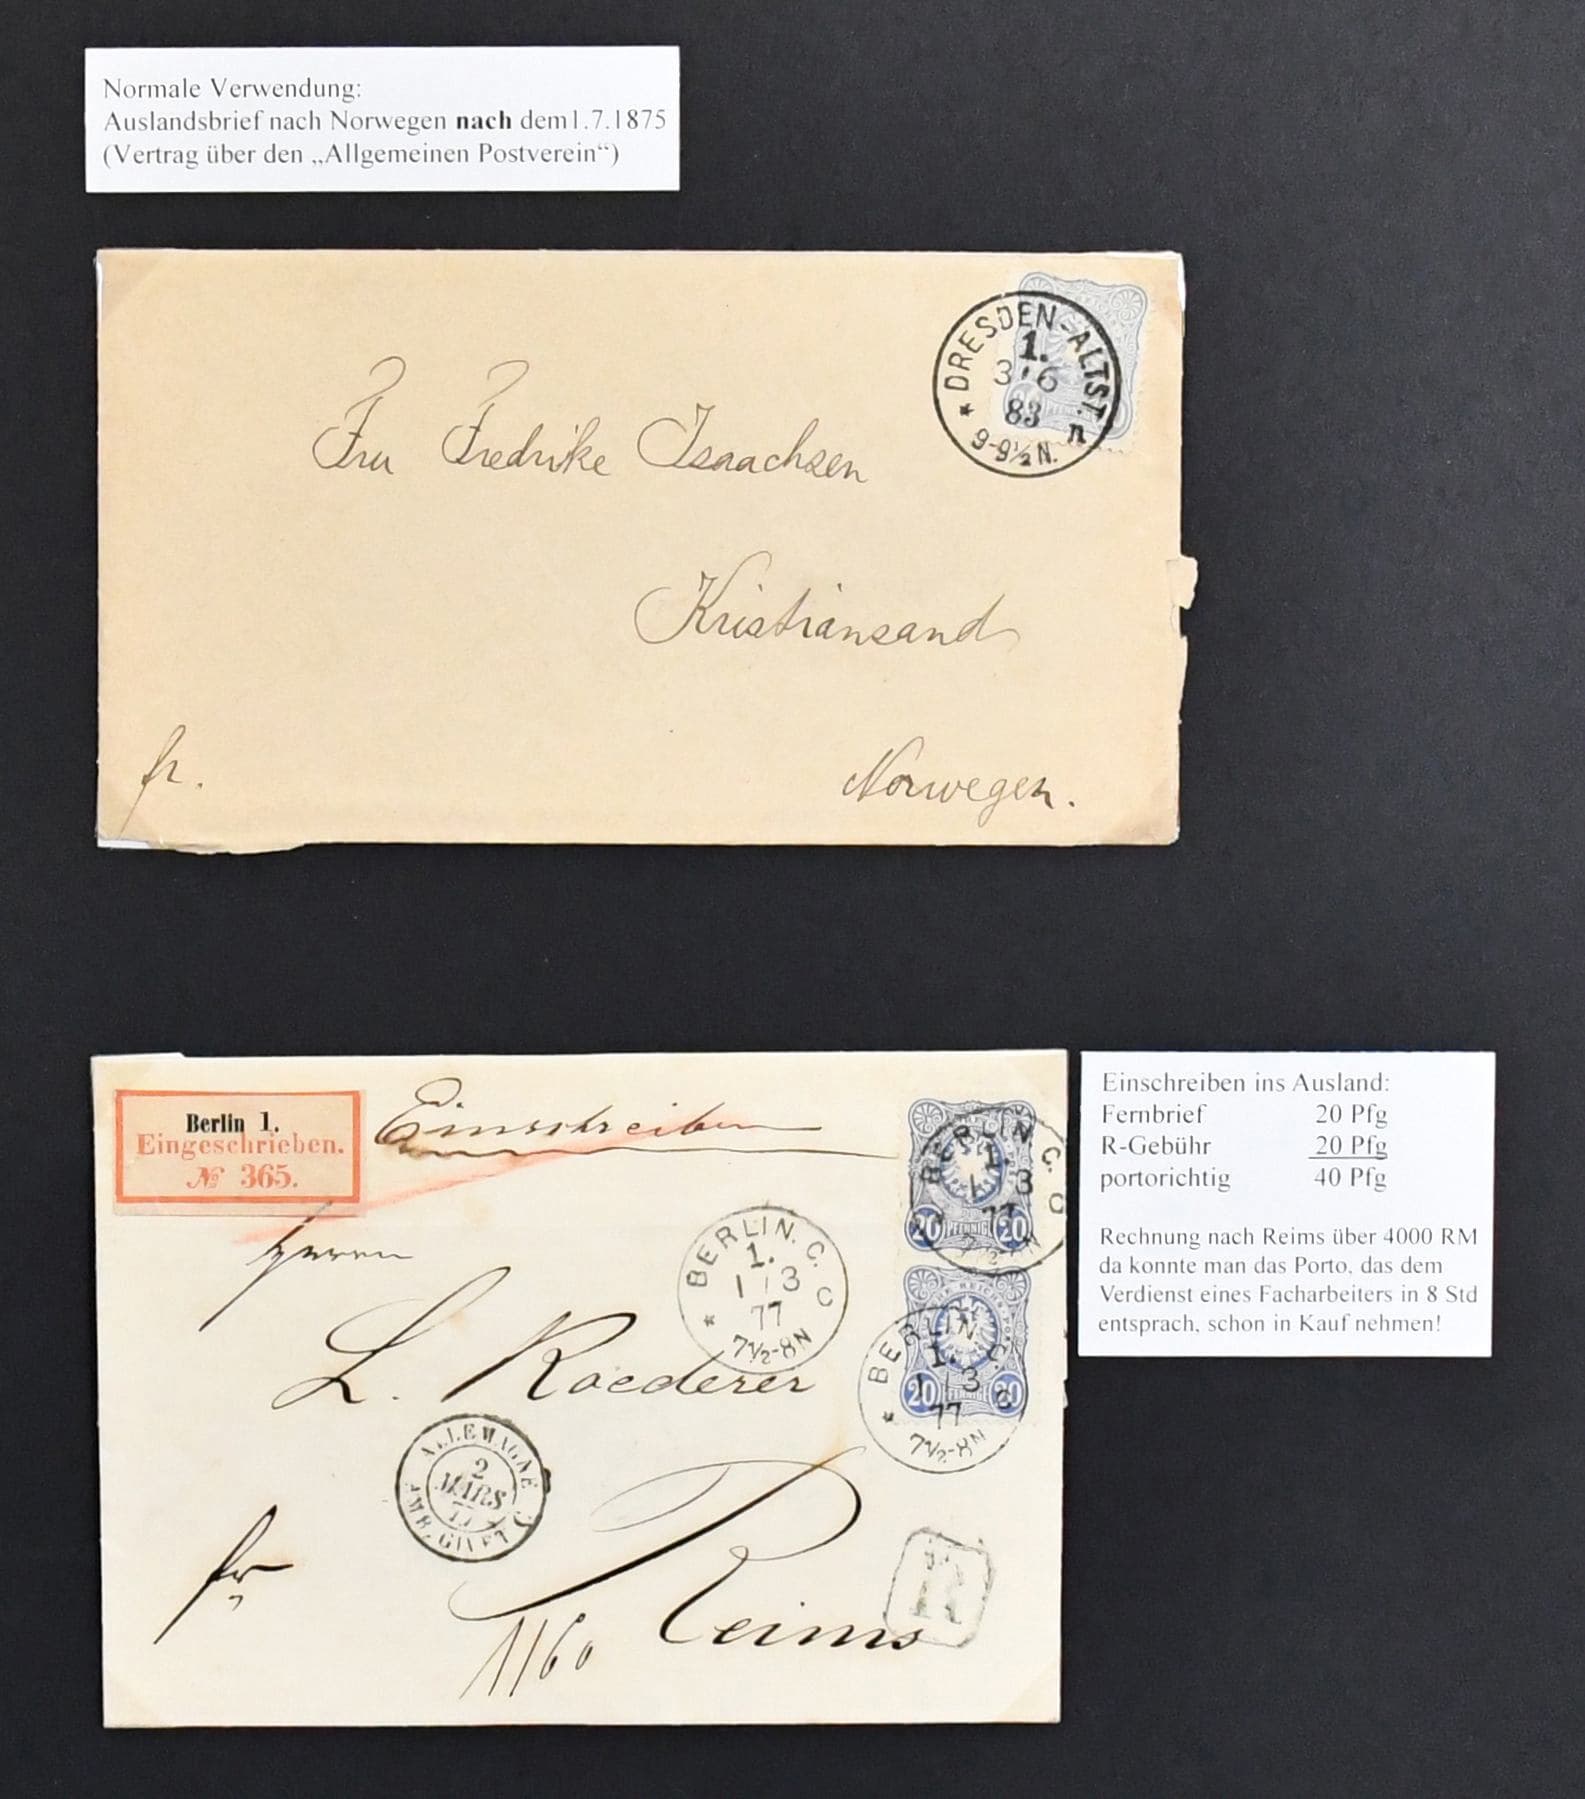 Normale Verwendung:
Auslandsbrief nach Norwegen nach dem1.7.1875
(Vertrag über den „Allgemeinen Postverein“)
DRESDEN-ALTST.
1.
3 6
83 n
* 9-9½N.
Fru Fredrikke Isaachsen
Kristiansand
fr.
Norwegen.
Berlin 1.
Eingeschrieben.
№ 365.
Einschreiben
BERLIN. C.
1.
1 3
77
7½-8N
20 PFENNIG 20
BERLIN. C.
1.
1 3 C
77
* 7½-8N
Herren
L. Roederer
BERLIN. C.
1.
1 3 C
77
* 7½-8N
20 PFENNIG 20
ALLEMAGNE
2
MARS
77
AMB. GIVET
fr
Reims
1160
R
Einschreiben ins Ausland:
Fernbrief 20 Pfg
R-Gebühr 20 Pfg
portorichtig 40 Pfg
Rechnung nach Reims über 4000 RM
da konnte man das Porto, das dem
Verdienst eines Facharbeiters in 8 Std
entsprach, schon in Kauf nehmen!